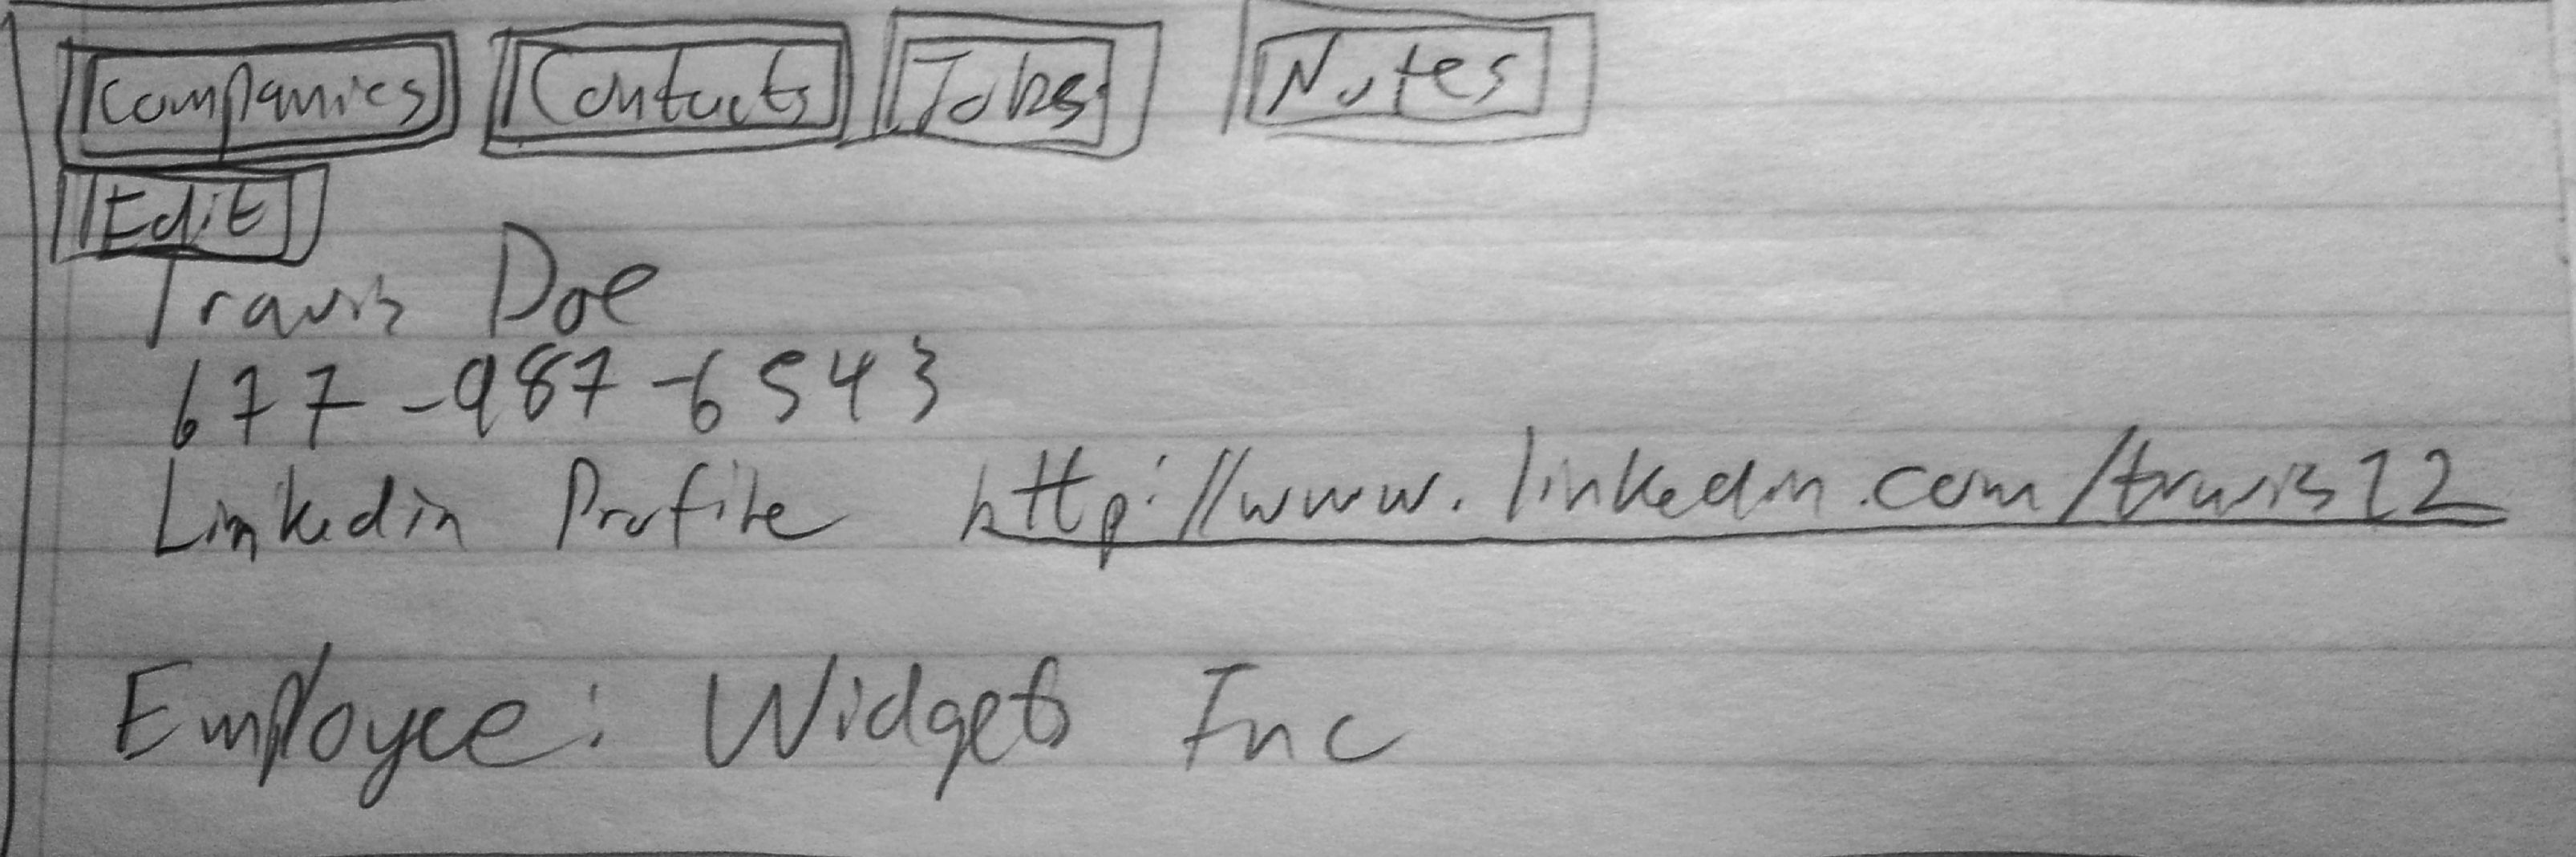 Companies Contacts Jobs Notes
Edit
Travis Doe
677-987-6543
Linkedin Profile http://www.linkedin.com/travis12
Employee: Widgets Inc